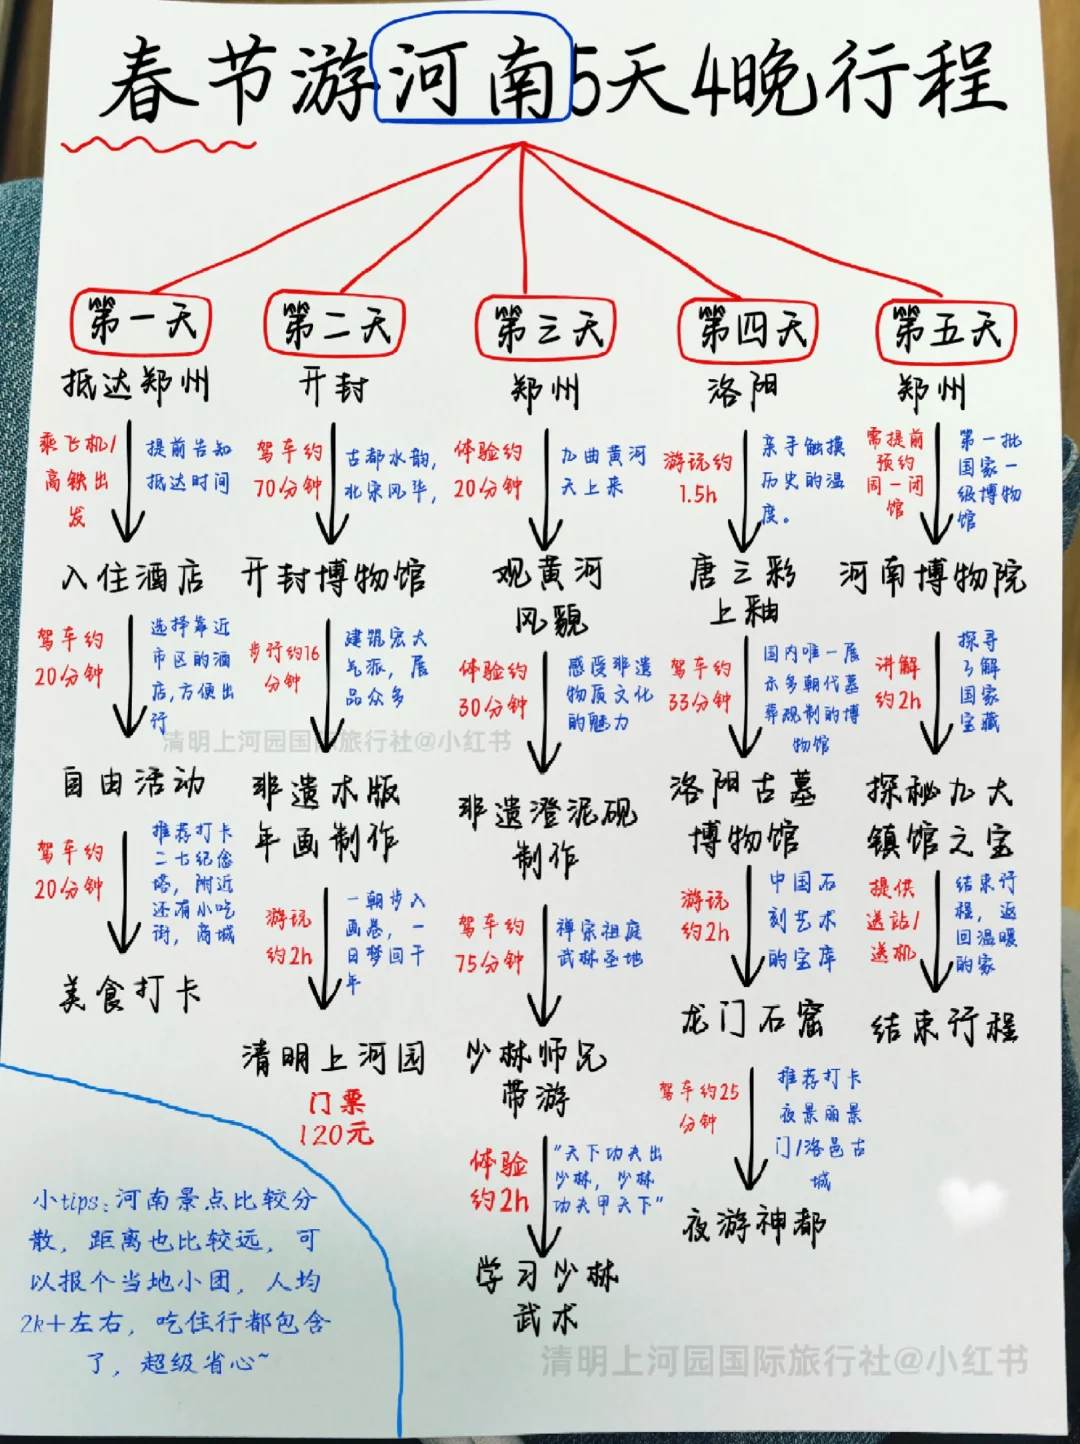 春节游河南5天4晚行程
第一天
抵达郑州
乘飞机/
高铁出
发
提前告知
抵达时间
入住酒店
驾车约
20分钟
选择靠近
市区的酒
店,方便出
行
自由活动
驾车约
20分钟
推荐打卡
二七纪念
塔，附近
还有小吃
街，商城
美食打卡
第二天
开封
驾车约
70分钟
古都水韵,
北宋风华,
开封博物馆
步行约16
分钟
建筑宏大
气派，展
品众多
非遗木版
年画制作
游玩
约2h
一朝步入
画卷，一
日梦回千
年
清明上河园
门票
120元
第三天
郑州
体验约
20分钟
九曲黄河
天上来
观黄河
风貌
体验约
30分钟
感受非遗
物质文化
的魅力
非遗澄泥砚
制作
驾车约
75分钟
禅宗祖庭
武林圣地
少林师兄
带游
体验
约2h
“天下功夫出
少林，少林
功夫甲天下”
学习少林
武术
第四天
洛阳
游玩约
1.5h
亲手触摸
历史的温
度。
唐三彩
上釉
驾车约
33分钟
国内唯一展
示多朝代墓
葬规制的博
物馆
洛阳古墓
博物馆
游玩
约2h
中国石
刻艺术
的宝库
龙门石窟
驾车约25
分钟
推荐打卡
夜景丽景
门/洛邑古
城
夜游神都
第五天
郑州
需提前
预约
周一闭
馆
第一批
国家一
级博物
馆
河南博物院
讲解
约2h
探寻
了解
国家
宝藏
探秘九大
镇馆之宝
提供
送站/
送机
结束行
程，返
回温暖
的家
结束行程
小tips:河南景点比较分
散，距离也比较远，可
以报个当地小团，人均
2k+左右，吃住行都包含
了，超级省心~
清明上河园国际旅行社@小红书
清明上河园国际旅行社@小红书